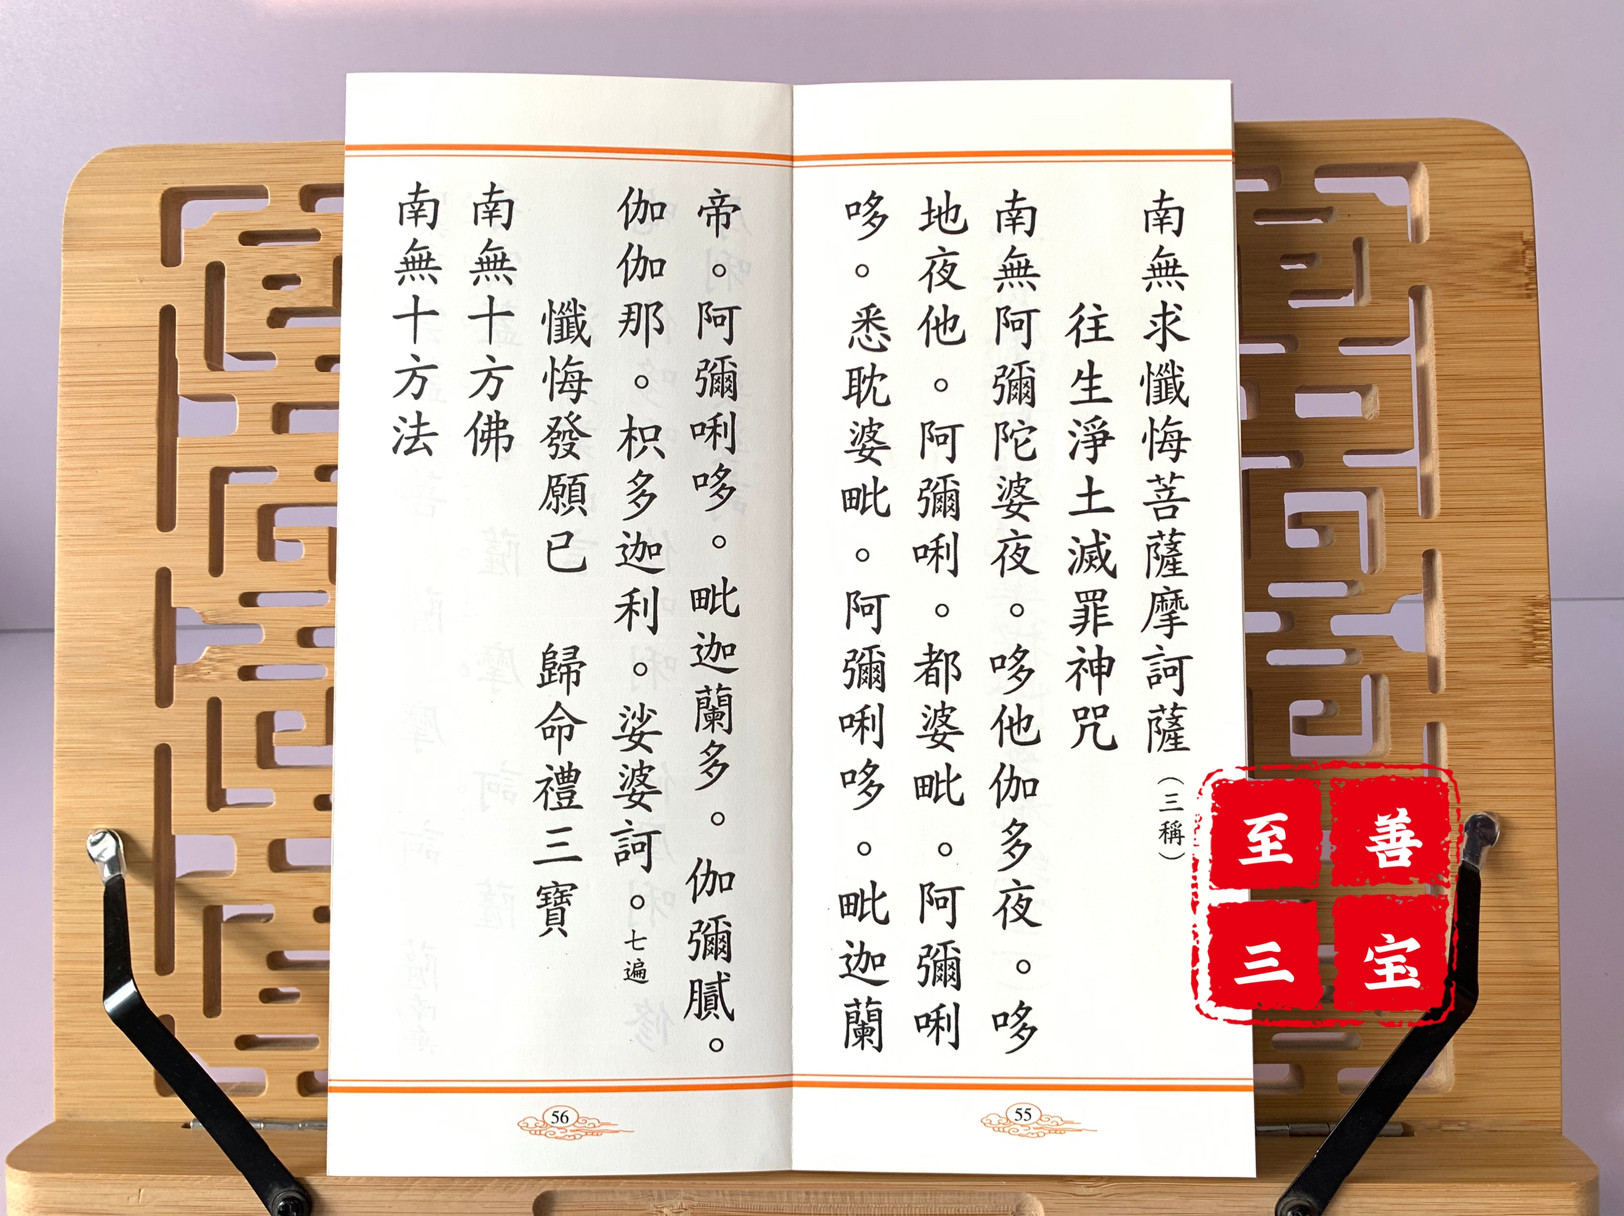 南無求懺悔菩薩摩訶薩（三稱）
往生淨土滅罪神咒
南無阿彌陀婆夜。哆他伽多夜。哆
地夜他。阿彌唎。都婆毗。阿彌唎
哆。悉耽婆毗。阿彌唎哆。毗迦蘭
55
帝。阿彌唎哆。毗迦蘭多。伽彌膩。
伽伽那。枳多迦利。娑婆訶。七遍
懺悔發願已 歸命禮三寶
南無十方佛
南無十方法
56
至善
三宝